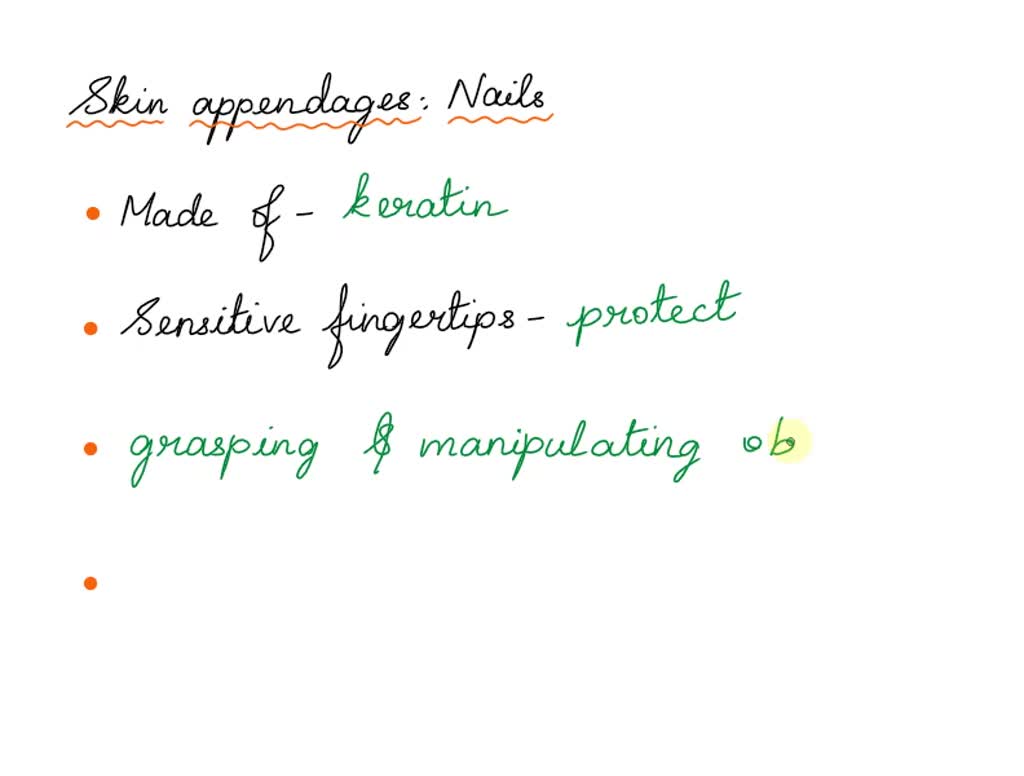 Skin appendages: Nails
• Made of - keratin
• Sensitive fingertips - protect
• grasping & manipulating ob
•